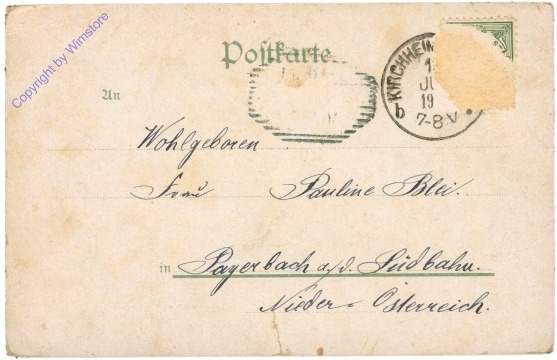 Copyright by Wimstore
Postkarte.
KIRCHHEIM
JU
19
7-8V.
b
An
Wohlgeboren
Frau Pauline Blei.
in Payerbach a/d. Südbahn.
Nieder-Österreich.